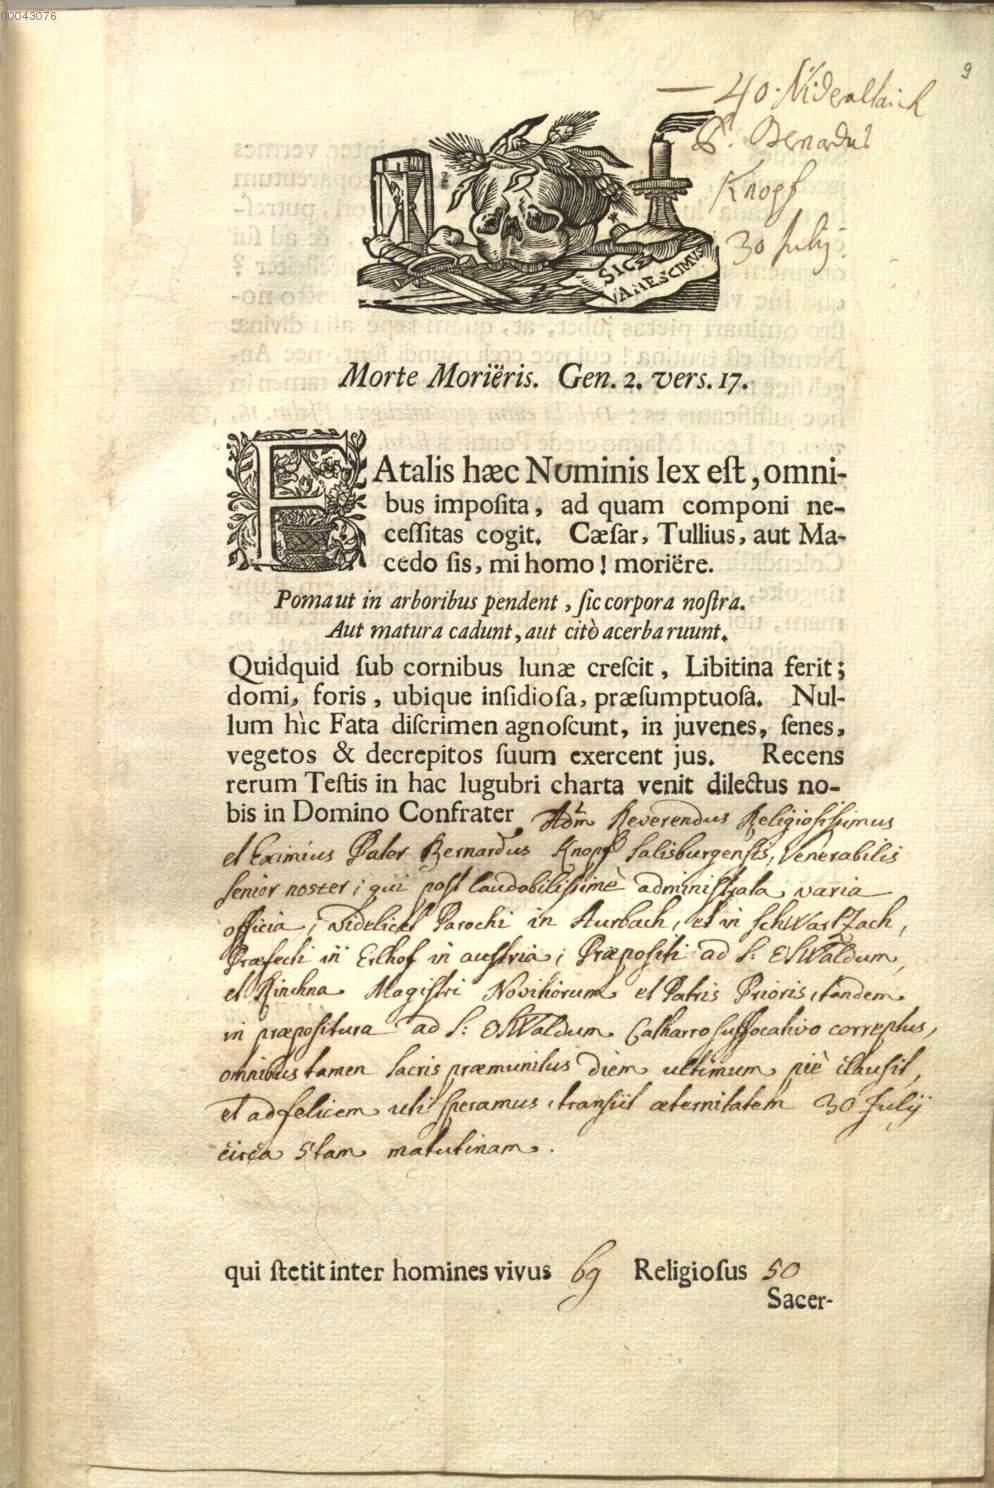 00043076
9
— 40. Nideraltaich
P. Bernardus
Knopf
30 Julij.
SIC E-
VANESCIMUS
Morte Moriëris. Gen. 2. vers. 17.
FAtalis hæc Numinis lex eſt, omni-
bus impoſita, ad quam componi ne-
ceſſitas cogit. Cæſar, Tullius, aut Ma-
cedo ſis, mi homo! moriëre.
Poma ut in arboribus pendent, ſic corpora noſtra.
Aut matura cadunt, aut citò acerba ruunt.
Quidquid ſub cornibus lunæ creſcit, Libitina ferit;
domi, foris, ubique inſidioſa, præſumptuoſa. Nul-
lum hìc Fata diſcrimen agnoſcunt, in juvenes, ſenes,
vegetos & decrepitos ſuum exercent jus. Recens
rerum Teſtis in hac lugubri charta venit dilectus no-
bis in Domino Confrater, Adm Reverendus Religiosissimus
et Eximius Pater Bernardus Knopf Salisburgensis, Venerabilis
senior noster; qui post laudabilissimè administrata varia
officia, videlicet Parochi in Aurbach, et in Schwartzach,
Præfecti in Erlhof in austria; Præpositi ad S: OSWaldum,
et Rinchna Magistri Novitiorum et Patris Prioris, tandem
in præpositura ad S: OSWaldum Catharro suffocativo correptus,
omnibus tamen sacris præmunitus diem ultimum piè clausit,
et ad felicem uti speramus, transiit æternitatem 30 Julij
circa 5tam matutinam.
qui ſtetit inter homines vivus 69 Religioſus 50
Sacer-